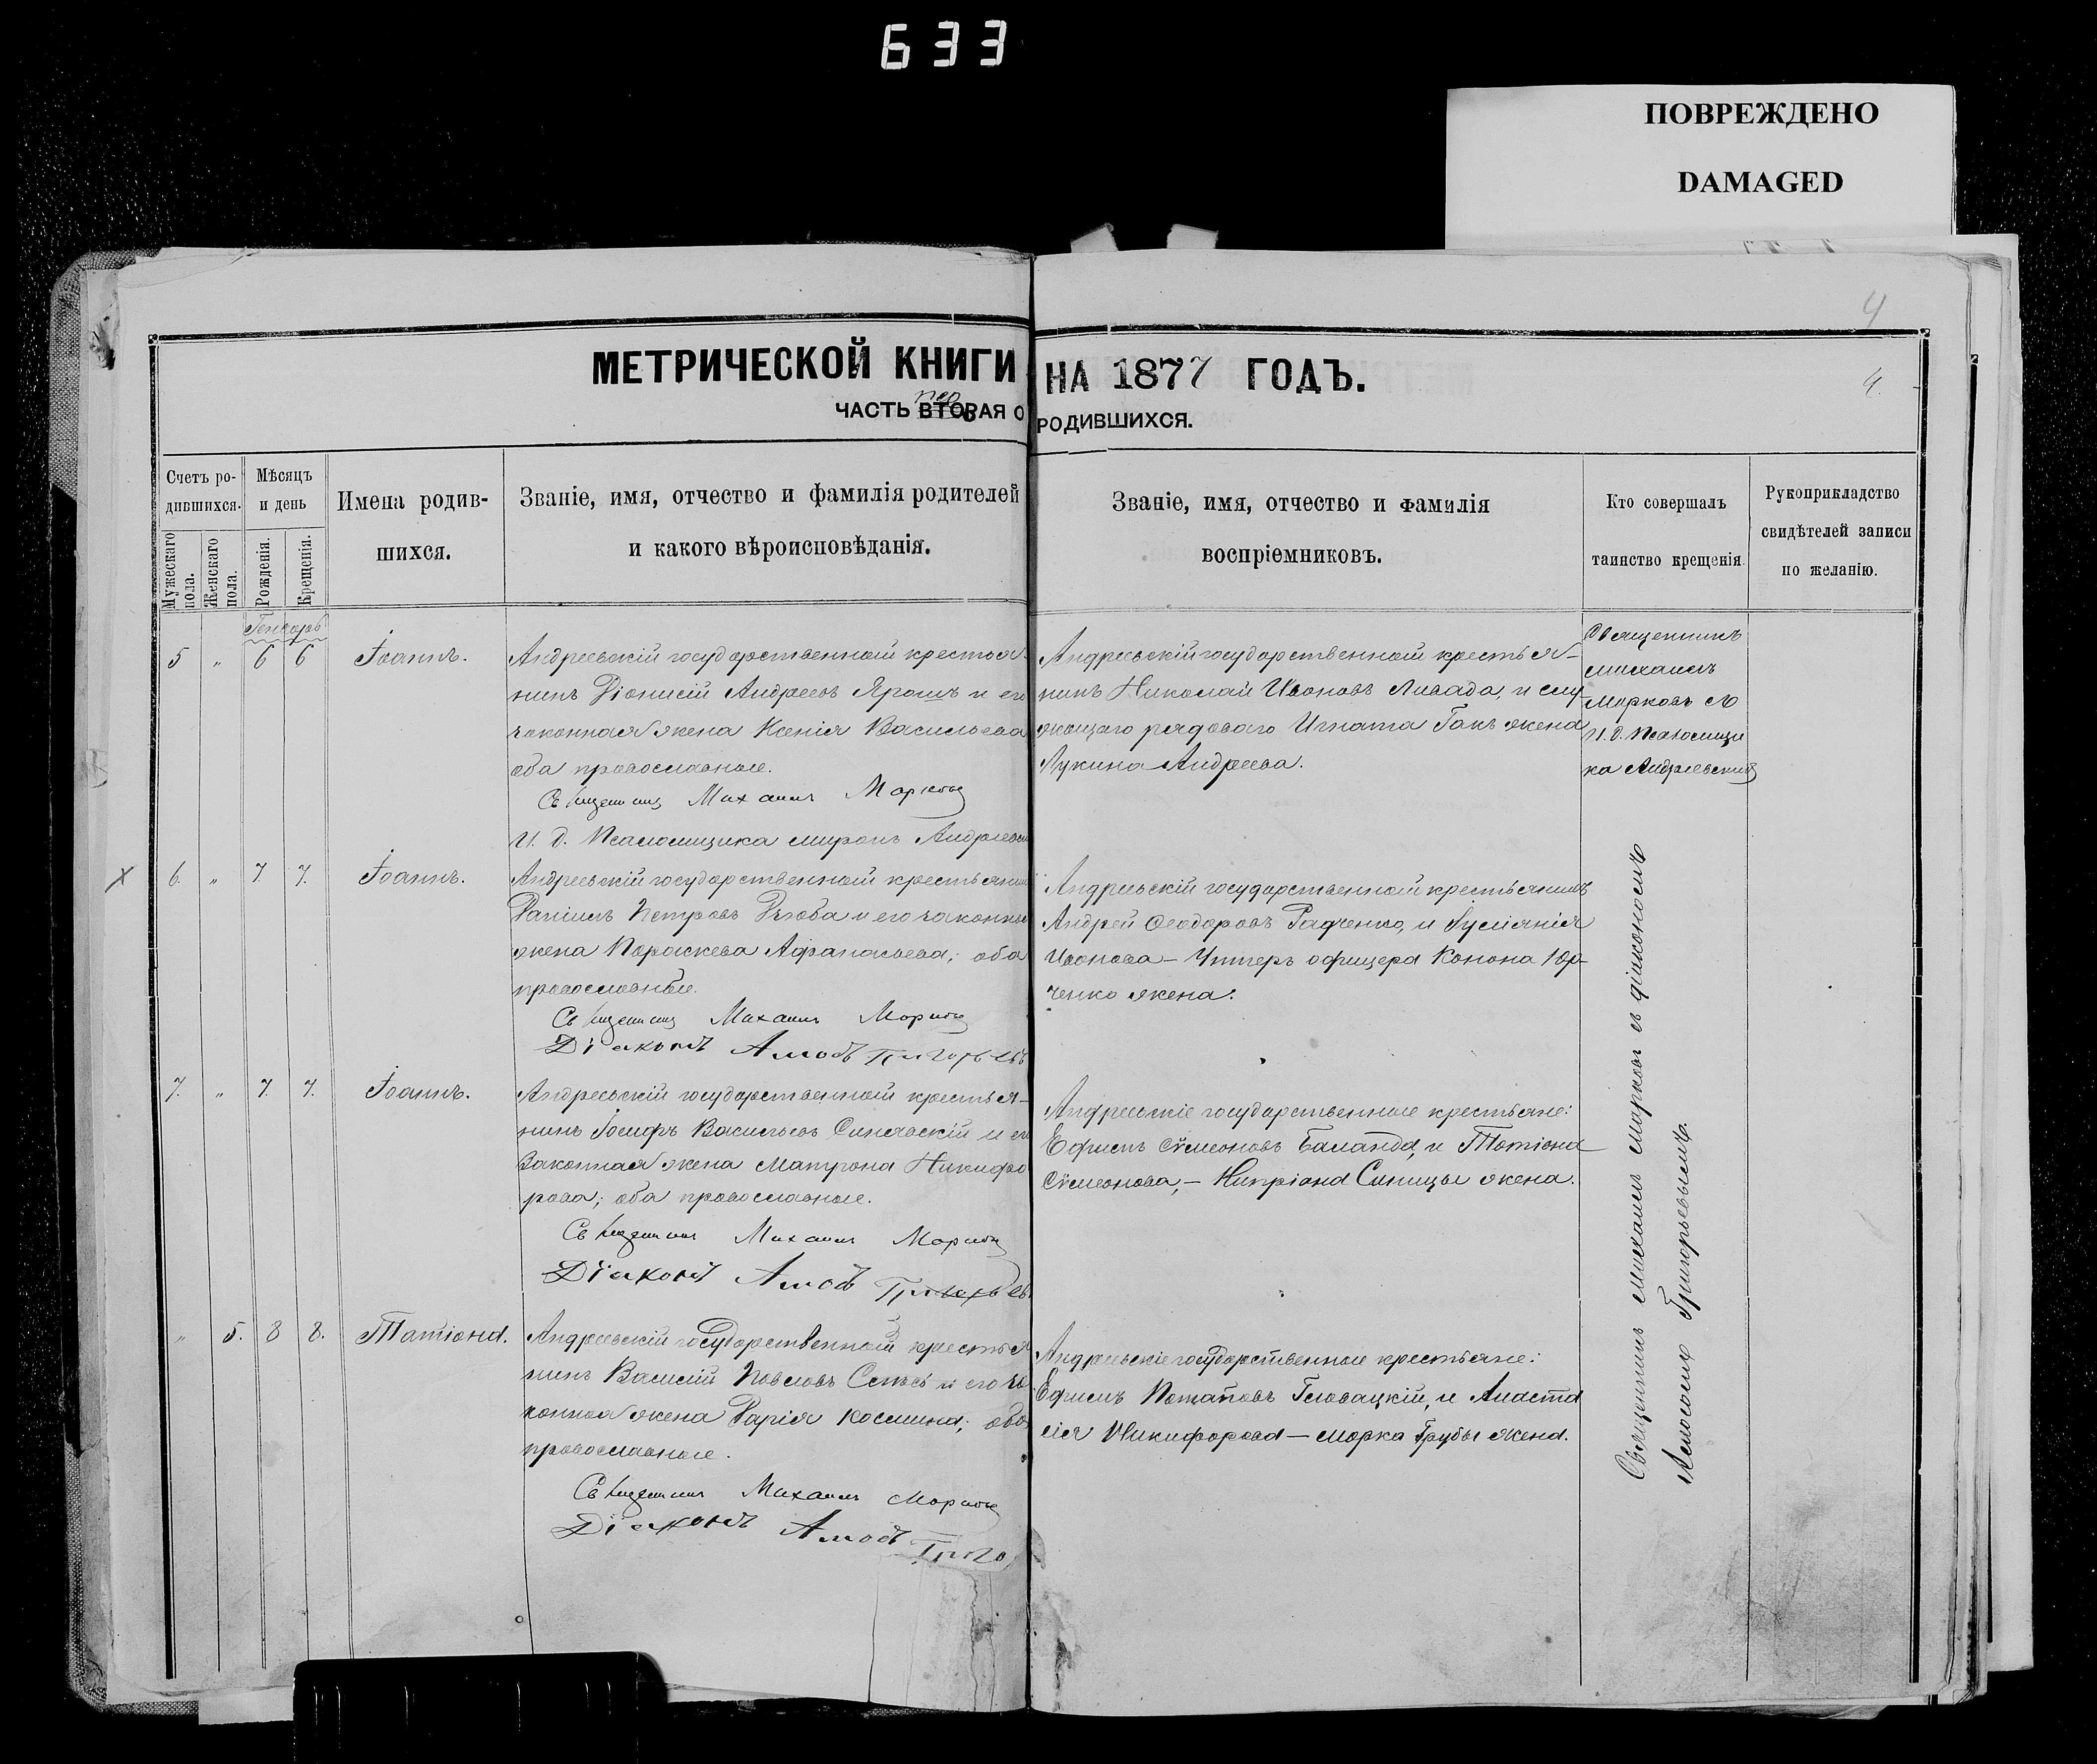 633
ПОВРЕЖДЕНО
DAMAGED
4
МЕТРИЧЕСКОЙ КНИГИ НА 1877 ГОДЪ.
4.
ЧАСТЬ ВТОРАЯ О РОДИВШИХСЯ.
Счетъ родившихся.
Мужескаго пола.
Женскаго пола.
Мѣсяцъ и день
Рожденія.
Крещенія.
Имена родившихся.
Званіе, имя, отчество и фамилія родителей
и какого вѣроисповѣданія.
Званіе, имя, отчество и фамилія
воспріемниковъ.
Кто совершалъ
таинство крещенія.
Рукоприкладство
свидѣтелей записи
по желанію.
Генварь
5 " 6 6 Іоаннъ.
Андреевскій государственный крестья-
нинъ Діонисій Андреевъ Ярошъ и его
законная жена Ксенія Васильева
оба православные.
Священникъ Михаилъ Марковъ
И. д. Псаломщика Миронъ Андреевскі
Андреевскій государственный крестья-
нинъ Николай Ивановъ Ливада, и слу-
жащаго рядоваго Игната Гакъ жена
Лукина Андреева.
Священникъ
Михаилъ
Марковъ съ
И. д. Псаломщи
ка Андреевскимъ
X 6. " 7. 7. Іоаннъ.
Андреевскій государственный крестьянин
Даніилъ Петровъ Дзюба и его законна
жена Параскева Афанасьева; оба
православные.
Священникъ Михаилъ Марковъ
Діаконъ Амосъ Григорьевъ
Андреевскій государственный крестьянинъ
Андрей Ѳеодоровъ Радченко, и
Иванова — Унтеръ офицера Конона Юр-
ченко жена.
7. " 7. 7. Іоаннъ.
Андреевскій государственный крестья-
нинъ Іосифъ Васильевъ Синявскій и ег
законная жена Матрона Никифо
рова; оба православные.
Священникъ Михаилъ Марковъ
Діаконъ Амосъ
Андреевскіе государственные крестьяне:
Ефремъ Сѵмеоновъ Баланда, и Татіана
Сѵмеонова, — Кипріана Синицы жена.
" 5. 8 8. Татіана.
Андреевскій государственный крестья
нинъ Василій Павловъ и его за
конная жена Дарія Космина; оба
православные.
Священникъ Михаилъ Марковъ
Діаконъ Амосъ Григо
Андреевскіе государственные крестьяне:
Ефремъ Потаповъ Головацкій, и Анаста
сія Никифорова — Марка Грубы жена.
Священникъ Михаилъ Марковъ съ діакономъ
Амосомъ Григорьевымъ.